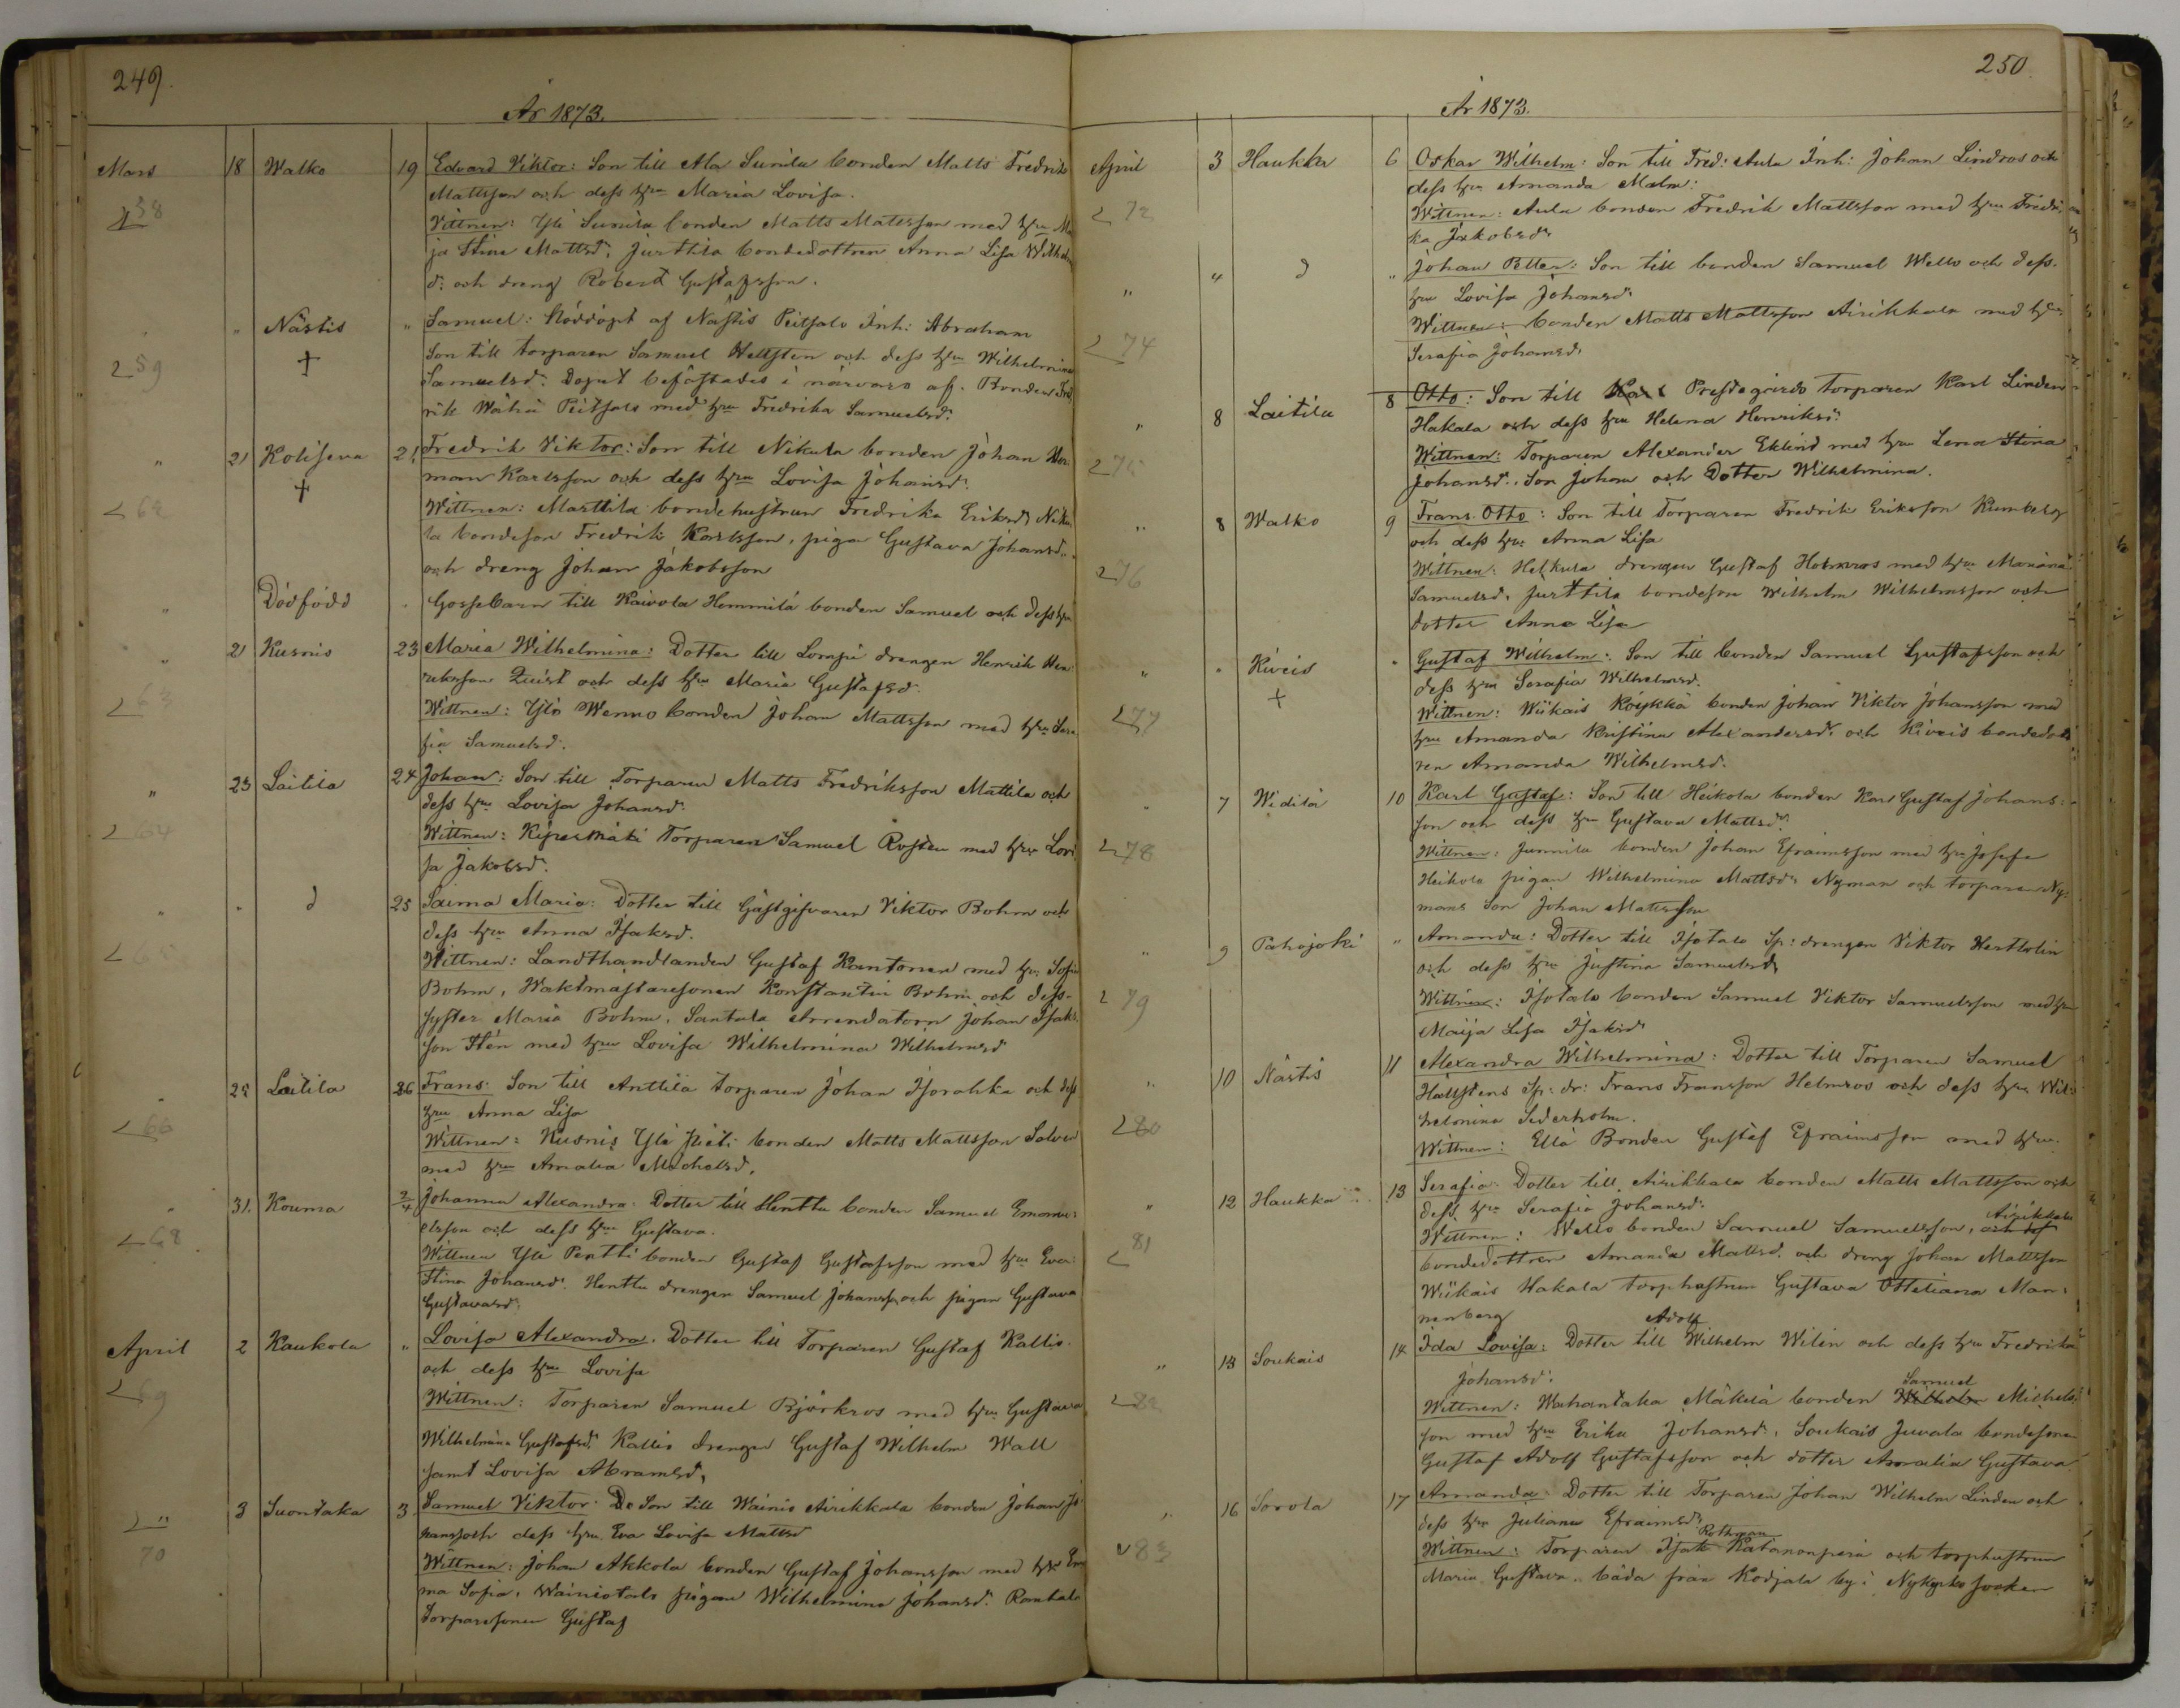 249.
År 1873.
Mars 18 Walko 19 Edvard Viktor: Son till Ala Sunila bonden Matts Fredrik
Mattsson och dess hru Maria Lovisa.
258
Vittnen: Yli Sunila bonden Matts Mattsson med hru Ma
ja Stina Mattsd:, Junttila bondedottren Anna Lisa Wilhelms
d: och dreng Robert Gustafsson.
" " Nästis " Samuel: Nöddöpt af Nästis Peitsalo Inh: Abraham
259 † Son till torparen Samuel Hellsten och dess hru Wilhelmina
Samuelsd: Dopet befästades i närvaro af. Bonden Fred
rik Wähä Peitsalo med hru Fredrika Samuelsd:
" 21 Koliseva 21 Fredrik Viktor: Son till Nikula bonden Johan Her
† man Karlsson och dess hru Lovisa Johansd:
262 Wittnen: Marttila bondehustrun Fredrika Eriksd: Niku
la bondeson Fredrik Karlsson, piga Gustava Johansd:
och dreng Johan Jakobsson
" Dödfödd Gossebarn till Kaivola Hemmilä bonden Samuel och dess hru
" 21 Kusnis 23 Maria Wilhelmina: Dotter till Lompi drengen Henrik Hen
riksson Quist och dess hru Maria Gustafsd.
263 Wittnen: Ylö Wenno bonden Johan Mattsson med hru Sera
fia Samuelsd.
" 23 Laitila 24 Johan: Son till Torparen Matts Fredriksson Mattila och
dess hru Lovisa Johansd:
264 Wittnen: Torparen Samuel Rosten med hru Lovi
sa Jakobsd:
" " d 25 Saima Maria: Dotter till Gästgifvaren Viktor Bohm och
dess hru Anna Isaksd.
265 Wittnen: Landthandlanden Gustaf Kantonen med hru Sofia
Bohm, Waktmästaresonen Konstantin Bohm och dess
syster Maria Bohm, Santala Arrendatorn Johan Isaks
son Stén med hru Lovisa Wilhelmina Wilhelmsd
" 25 Laitila 26 Frans: Son till Anttila torparen Johan Isorahka och dess
hru Anna Lisa
266 Wittnen: Kusnis Yli bonden Matts Mattsson Salven
med hru Amalia Michelsd.
" 31. Kouma 2/4 Johanna Alexandra: Dotter till Henttu bonden Samuel Emanu:
elsson och dess hru Gustava.
268. Wittnen Yli Pentti bonden Gustaf Gustafsson med hru Eva
Stina Johansd: Henttu drengen Samuel Johanss: och pigan Gustava
Gustavasd:
April 2 Kaukola " Lovisa Alexandra. Dotter till Torparen Gustaf Kallio
och dess hru Lovisa
269 Wittnen: Torparen Samuel Björkros med hru Gustava
Wilhelmina Gustafsd: Kallio drengen Gustaf Wilhelm Wall
samt Lovisa Abramsd.
" 3 Suontaka 3 Samuel Viktor. Son till Wainio Airikkala bonden Johan Jo
hanss och dess hru Eva Lovisa Mattsd
270 Wittnen: Johan Akkola bonden Gustaf Johansson med hru Em
ma Sofia, Wainiotalo pigan Wilhelmina Johansd: Rantala
Torparesonen Gustaf
250.
År 1873.
April 3 Haukka 6 Oskar Wilhelm: Son till Fred: Aula Inh: Johan Lindros och
dess hru Amanda Malm:
272 Wittnen: Aula bonden Fredrik Mattsson med hru Fredri
ka Jakobsd:
" " d " Johan Petter: Son till bonden Samuel Wello och dess
hru Lovisa Johansd:
274 Wittnen: bonden Matts Mattsson Airikkala med hru
Serafia Johansd:
" 8 Laitila 8 Otto: Son till Prestegårds torparen Karl Linden
Hakala och dess hru Helena Henriksd:
275 Wittnen: Torparen Alexander Eklund med hru Lena Stina
Johansd:, Son Johan och Dotter Wilhelmina.
" 8 Walko 9 Frans Otto: Son till Torparen Fredrik Eriksson Rumberg
och dess hru Anna Lisa
276 Wittnen: Helkura drengen Gustaf Holmros med hru Mariana
Samuelsd, Junttila bondeson Wilhelm Wilhelmsson och
dotter Anna Lisa
" " Kiveis " Gustaf Wilhelm: Son till bonden Samuel Gustafsson och
† dess hru Serafia Wilhelmsd.
277 Wittnen: Wiikais Köykkä bonden Johan Viktor Johansson med
hru Amanda Kristina Alexandersd. och Kiveis bondedott
ren Amanda Wilhelmsd.
" 7 Widilä 10 Karl Gustaf: Son till Heikola bonden Karl Gustaf Johans:
son och dess hru Gustava Mattsd:
278 Wittnen: Junnila bonden Johan Efraimsson med hru Josefa
Heikola pigan Wilhelmina Mattsd: Nyman och torparen Ny
mans Son Johan Mattsson
" 9 Pahojoki " Amanda: Dotter till Isotalo Sp: drengen Viktor Herttolin
och dess hru Justina Samuelsd:
279 Wittnen: Isotalo bonden Samuel Viktor Samuelsson med hru
Maija Lisa Isaksd:
" 10 Nästis 11 Alexandra Wilhelmina: Dotter till Torparen Samuel
Hällstens Sp: dr: Frans Fransson Helmros och dess hru Wil:
helmina Sederholm.
280 Wittnen: Ellä Bonden Gustaf Efraimsson med hru.
" 12 Haukka 13 Serafia. Dotter till Airikkala bonden Matts Mattsson och
dess hru Serafia Johansd:
281 Wittnen: Wello bonden Samuel Samuelsson, Airikkala
bondedottren Amanda Mattsd. och dreng Johan Mattsson
Wiikais Hakala torphustrun Gustava Ottiliana Man:
nerberg
" 13 Soukais 14 Ida Lovisa: Dotter till Adolf Wilhelm Wilén och dess hru Fredrika
Johansd:
282 Wittnen: Wahantaka Mäkilä bonden Samuel Wilhelm Michels
son med hru Erika Johansd:, Soukais Juvala bondesonen
Gustaf Adolf Gustafsson och dotter Amalia Gustava
" 16 Sorola 17 Amanda: Dotter till Torparen Johan Wilhelm Linden och
dess hru Juliana Efraimsd:
283 Wittnen: Torparen Isak Rothman Katanonperä och torphustrun
Maria Gustava. båda från Kodjala by i Nykyrko socken